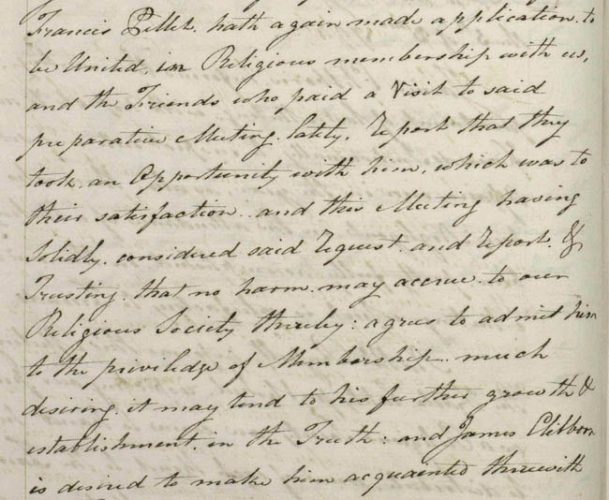 Francis Pillet. hath again made application to
be United, in Religious membership with us,
and the Friends who paid a Visit to said
preparative Meeting lately, Report that they
took an Opportunity with him, which was to
their satisfaction and this Meeting having
Solidly considered said Request and Report &
Trusting that no harm may accrue to our
Religious Society thereby: agrees to admit him
to the priviledge of Membership much
desiring it may tend to his further growth &
establishment in the Truth: and James Clibborn
is desired to make him acquainted therewith